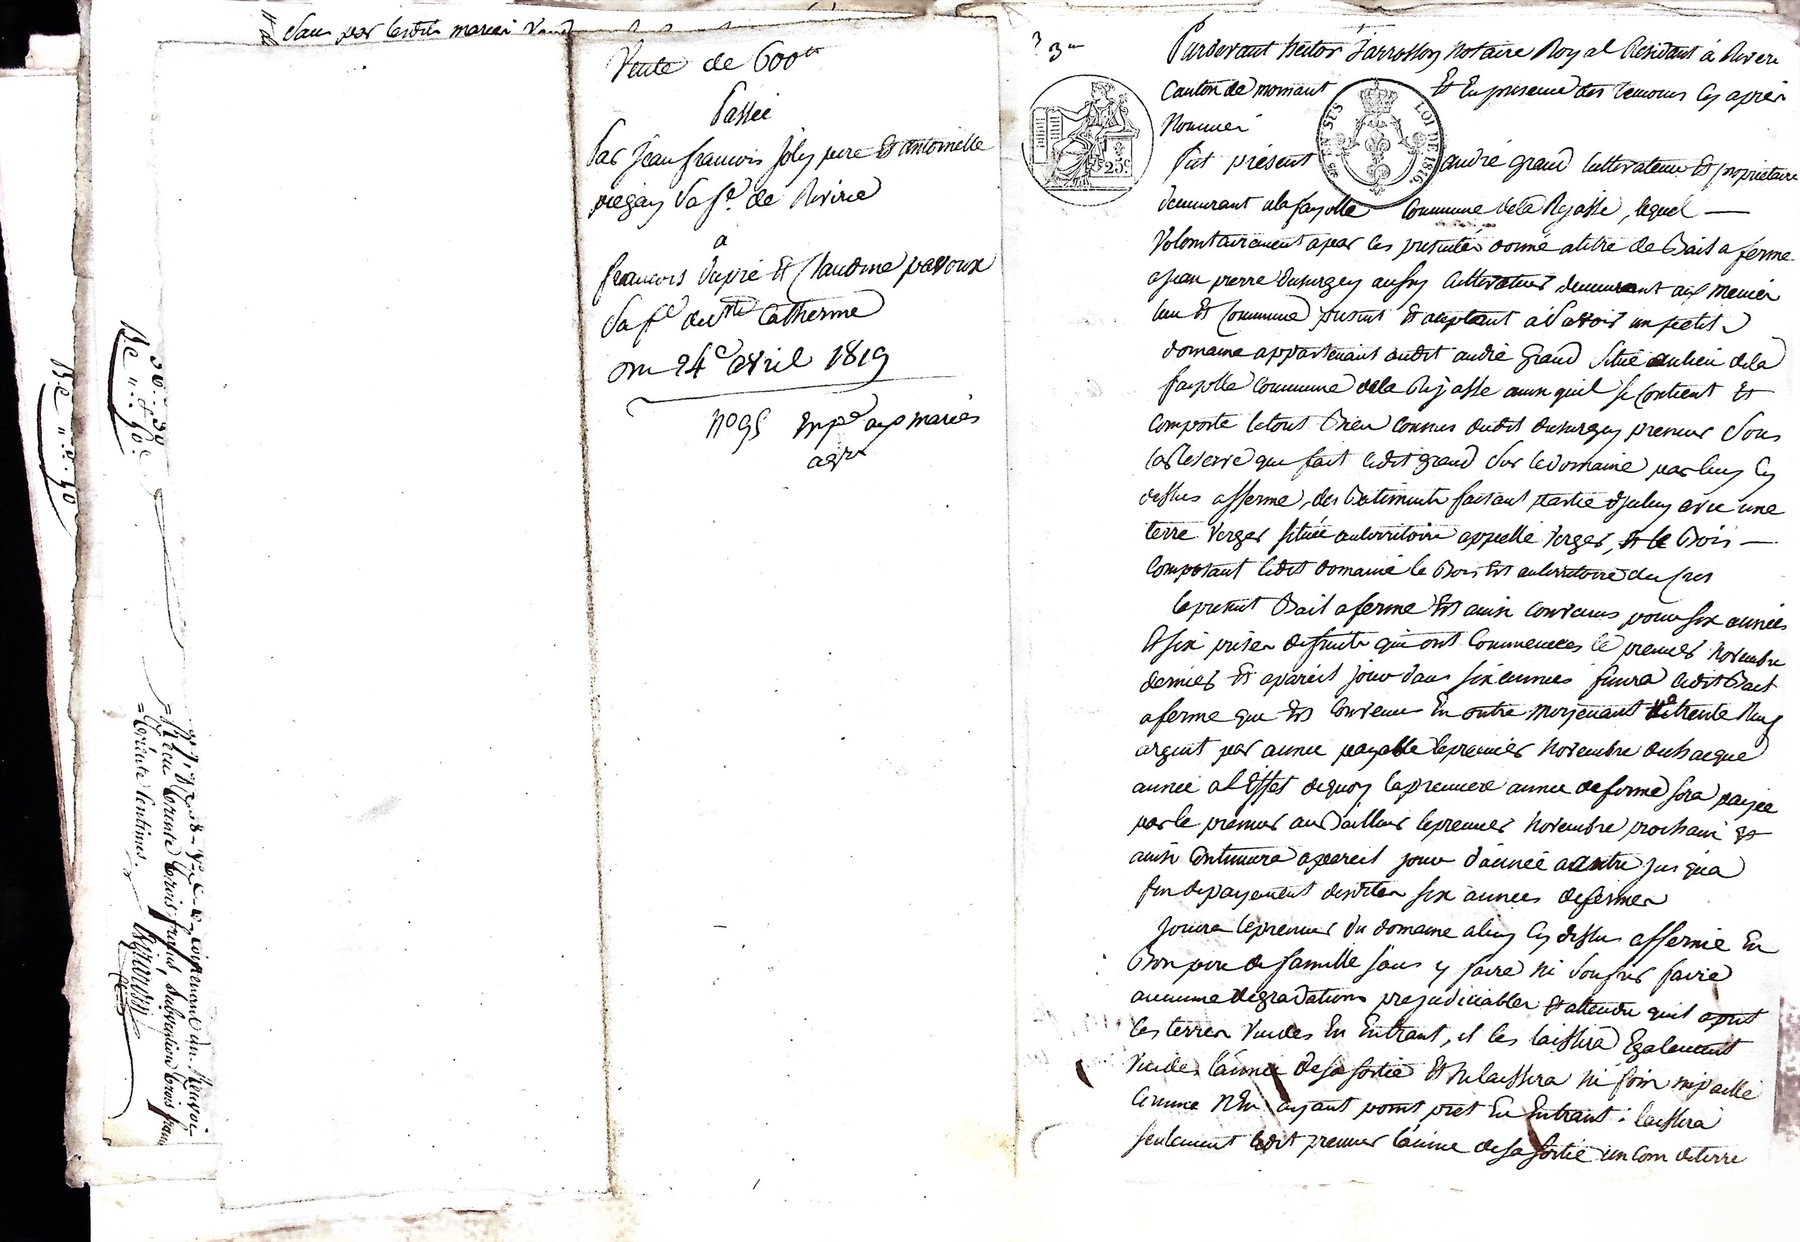 Sau par lesdits mariés
Vente de 600#
Passée
Par Jean francois Joly pere Et antoinette
piegay sa fe. de Riverie
a
francois dupré Et Claudine pavoux
sa fe de Ste Catherine
Du 24e avril 1819
no 95 Expe aux mariés
3
Pardevant hector Jarrosson Notaire Royal Résidant à Riveri
Canton de mornant Et En presence des temoins Cy après
Nommés
25c.
EN SUS
LOI DE 1816.
fut présent andré grand Cultivateur Et propriétaire
demeurant a la fayolle Commune de la Rajasse, lequel
Volontairement a par ces presentes donné a titre de Bail a ferme
a jean pierre Dusurgey au fils Cultivateur demeurant aux
lieu Et Commune present Et acceptant a Savoir un petit
domaine appartenant audit andré Grand Situé au lieu de la
fayolle commune de la Rajasse ainsi qu'il se Contient Et
Comporte le tout Bien Connus dudit dusurgey preneur Sous
la Reserve que fait ledit grand Sur le domaine par luy Cy
dessus affermé, des Batiments faisant partie d'Iceluy avec une
terre Verger Située au territoire appellé Verger, Et le Bois
Composant ledit domaine le Bois Est au territoire du Cros
le present Bail a ferme Est ainsi Convenus pour Six années
Et Six prises de fruits qui ont Commencées le premier Novembre
dernier Et a pareil jour dans Six années finira ledit Bail
a ferme que Est Convenu En outre Moyenant de trente
argent par année payable le premier Novembre de chacque
année a l'Effet de quoy la premiere année de ferme Sera payée
par le preneur au Bailleur le premier Novembre prochain Et
ainsi Continuera a pareil jour d'année a autre Jusqu'a
fin de payement desdites Six années de fermes
Jouira le preneur du domaine a luy Cy dessus affermé En
Bon pere de famille Sans y faire Ni Soufrir faire
aucunne degradations prejudiciables Et attendu qu'il a prit
les terres Vuides En Entrant, il les laissera Egalement
Vuides l'année de sa sortie Et Ne laissera Ni foin ni paille
Comme N'En ayant point prit En Entrant: laissera
Seulement ledit preneur l'année de sa Sortie un Coin de terre